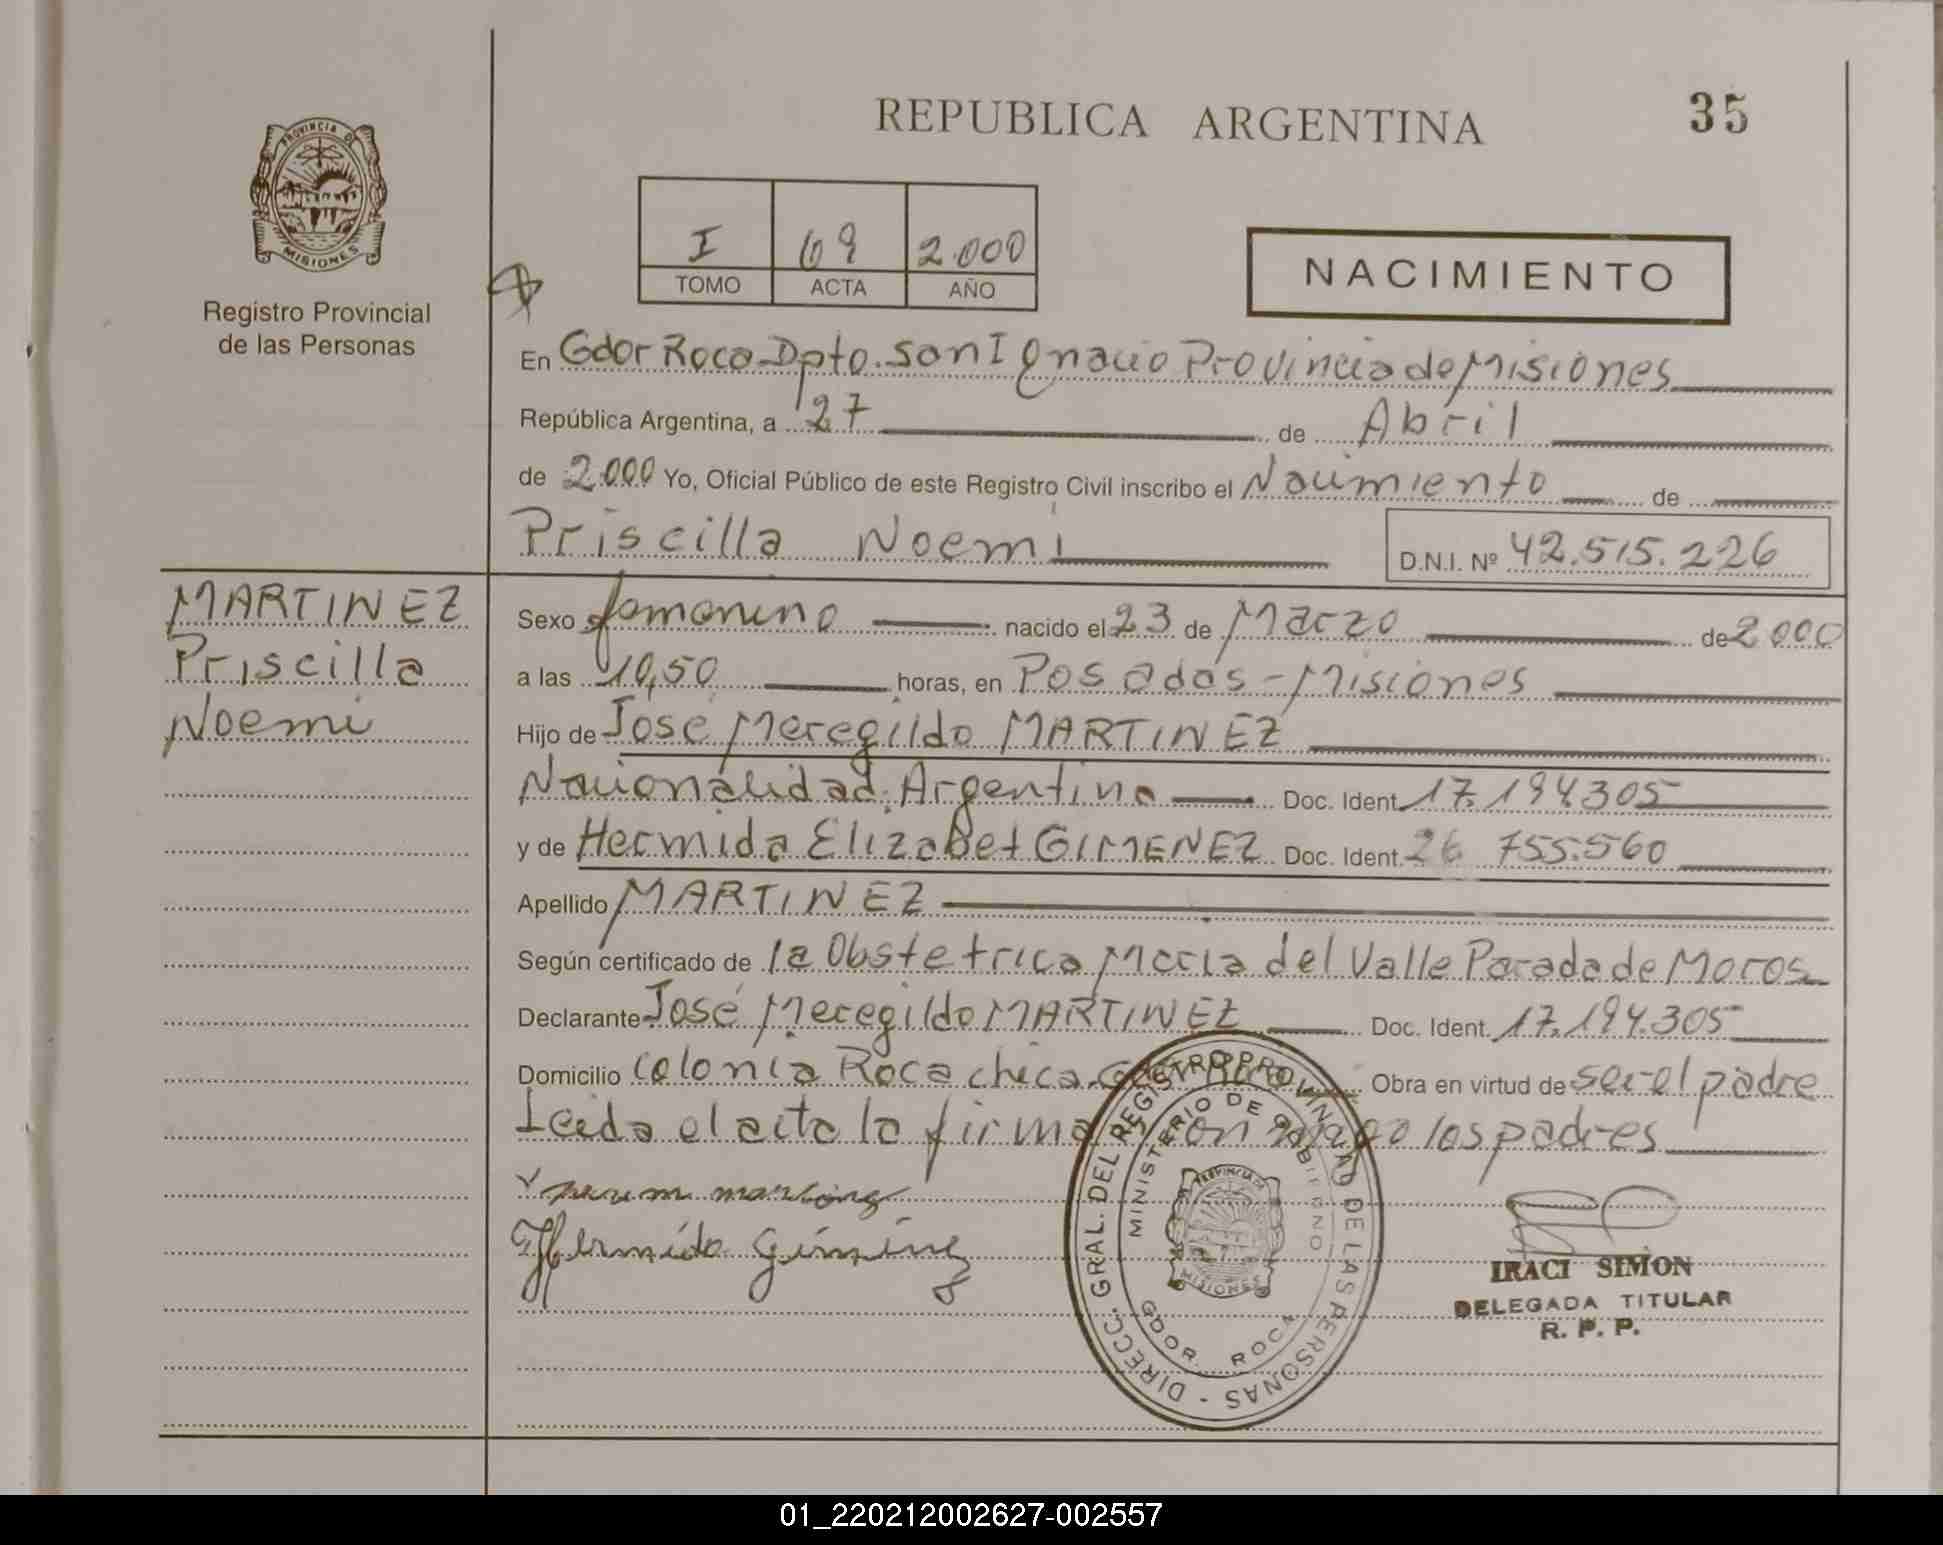 REPUBLICA ARGENTINA
35
PROVINCIA DE
MISIONES
Registro Provincial
de las Personas
I 69 2.000
TOMO ACTA AÑO
NACIMIENTO
En Gdor Roca Dpto. San Ignacio Provincia de Misiones
República Argentina, a 27 de Abril
de 2.000 Yo, Oficial Público de este Registro Civil inscribo el Nacimiento de
Priscilla Noemi
D.N.I. Nº 42.515.226
MARTINEZ
Priscilla
Noemi
Sexo femenino nacido el 23 de Marzo de 2000
a las 10,50 horas, en Posadas - Misiones
Hijo de José Meregildo MARTINEZ
Nacionalidad Argentina Doc. Ident. 17.194.305
y de Hermida Elizabet GIMENEZ Doc. Ident. 26 755.560
Apellido MARTINEZ
Según certificado de la Obstetrica Maria del Valle Parada de Moros
Declarante José Meregildo MARTINEZ Doc. Ident. 17.194.305
Domicilio Colonia Roca chica Gdor Roca Obra en virtud de ser el padre
Leida el acta la firman conmigo los padres
Hermida Giminez
DIRECC. GRAL. DEL REGISTRO PROVINCIAL DE LAS PERSONAS -
MINISTERIO DE GOBIERNO
PROVINCIA DE
MISIONES
GDOR. ROCA
IRACI SIMON
DELEGADA TITULAR
R. P. P.
01_220212002627-002557